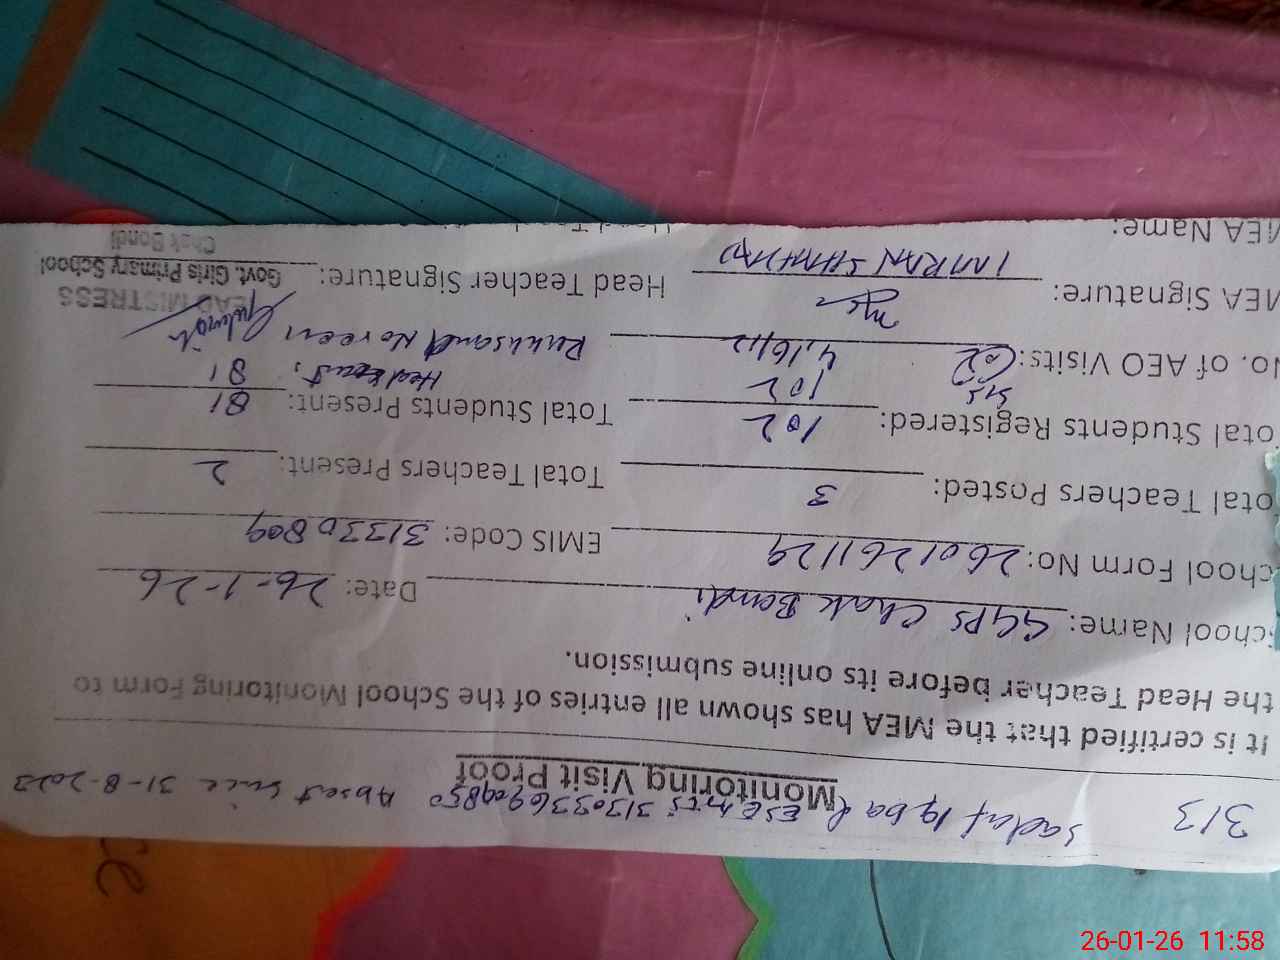 313 Sadaf Iqbal ESE Arts 3130336909850 Absent since 31-8-2023
Monitoring Visit Proof
It is certified that the MEA has shown all entries of the School Monitoring Form to
the Head Teacher before its online submission.
School Name: GGPS Chak Bondi Date: 26-1-26
School Form No: 2601261129 EMIS Code: 31330809
Total Teachers Posted: 3 Total Teachers Present: 2
Total Students Registered: 102 Total Students Present: 81
SIS 102 Headcount, 81
No. of AEO Visits: 4,16,12 Rukhsana Noreen
MEA Signature: Head Teacher Signature:
IMRAN SHAHZAD
HEADMISTRESS
Govt. Girls Primary School
Chak Bondi
MEA Name:
26-01-26 11:58